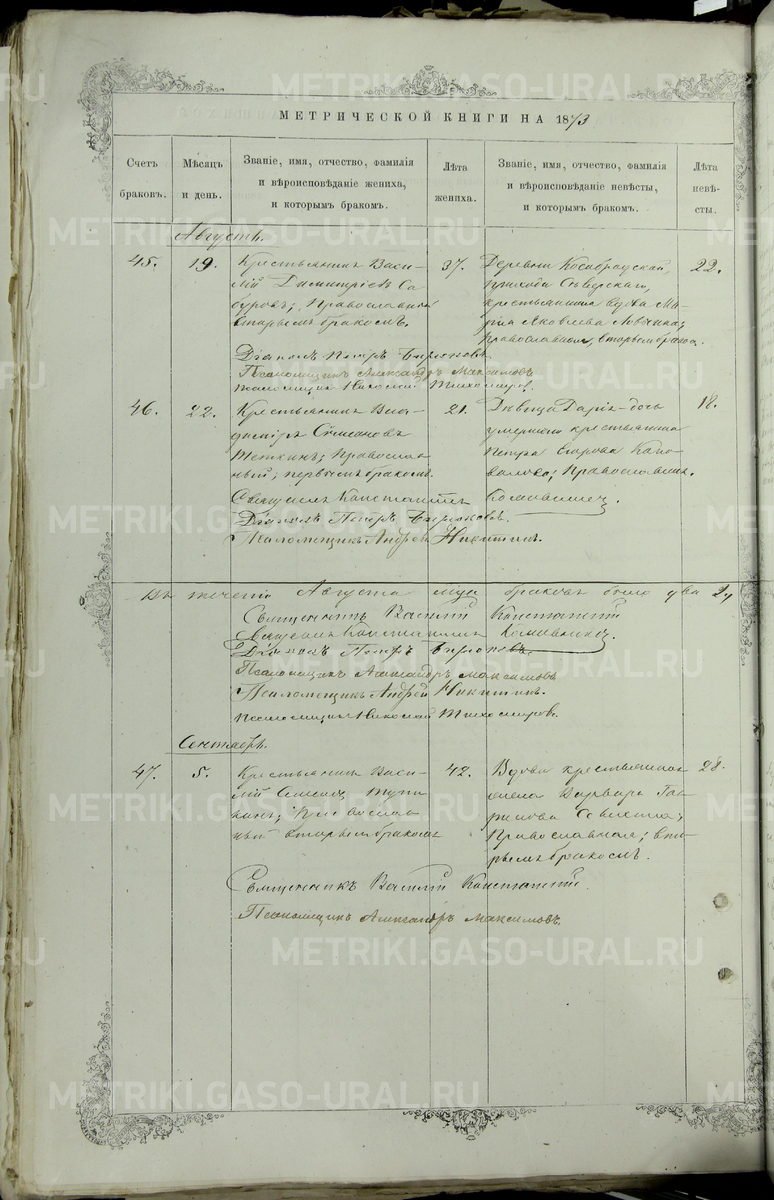 МЕТРИЧЕСКОЙ КНИГИ НА 1873
Счетъ браковъ.
Мѣсяцъ и день.
Званіе, имя, отчество, фамилія
и вѣроисповѣданіе жениха,
и которымъ бракомъ.
Лѣта жениха.
Званіе, имя, отчество, фамилія
и вѣроисповѣданіе невѣсты,
и которымъ бракомъ.
Лѣта невѣ-
сты.
Августъ.
45.
19.
Крестьянинъ Васи-
лій Димитріевъ Са
буровъ; Православный
вторымъ бракомъ.
37.
Деревни Кособродской,
прихода Сѣверскаго,
крестьянская вдова Ма-
рія Яковлева
Православная, вторымъ бракомъ.
22.
Діаконъ Петръ Бирюковъ
Псаломщикъ Александръ Максимовъ
псаломщикъ Николай Тихомировъ.
46.
22.
Крестьянинъ Вла-
диміръ Симеоновъ
Теткинъ; Православ-
ный; первымъ бракомъ.
21.
Дѣвица Дарія – дочь
умершаго крестьянина
Петра Егорова Коно-
валова; Православная.
18.
Священникъ Константинъ
Діаконъ Петръ Бирюковъ.
Псаломщикъ Андрей Никитинъ.
Въ теченіи Августа мца браковъ было два 2,
Священникъ Василій
Священникъ Константинъ
Діаконъ Петръ Бирюковъ.
Псаломщикъ Александръ Максимовъ
Псаломщикъ Андрей Никитинъ.
псаломщикъ Николай Тихомировъ.
Сентябрь.
47.
5.
Крестьянинъ Васи-
лій
Православ-
ный вторымъ бракомъ
42.
Вдова крестьянская
жена Варвара Гав-
рилова
Православная; вто-
рымъ бракомъ.
28.
Священникъ Василій
Псаломщикъ Александръ Максимовъ.
METRIKI.GASO-URAL.RU